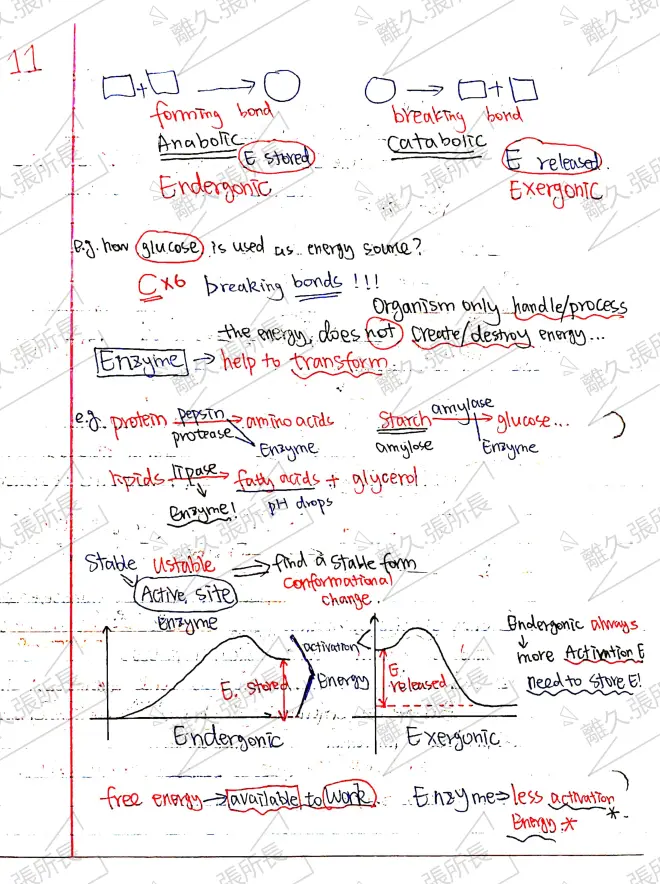 11
forming bond
breaking bond
Anabolic
E stored
Catabolic
E released
Endergonic
Exergonic
e.g. how glucose is used as energy source?
C×6 breaking bonds !!!
Organism only handle/process
the energy, does not create/destroy energy...
Enzyme ⇒ help to transform
e.g. protein pepsin → amino acids
protease
Enzyme
Starch amylase → glucose...
amylose
Enzyme
lipids lipase → fatty acids + glycerol
Enzyme!
pH drops
Stable Ustable ⇒ find a stable form
Active site
conformational
change
enzyme
activation
Energy
E. stored
Endergonic
E.
released
Exergonic
Endergonic always
more Activation E
need to store E!
free energy → available to work
Enzyme ⇒ less activation
Energy *
*
離久.張所長